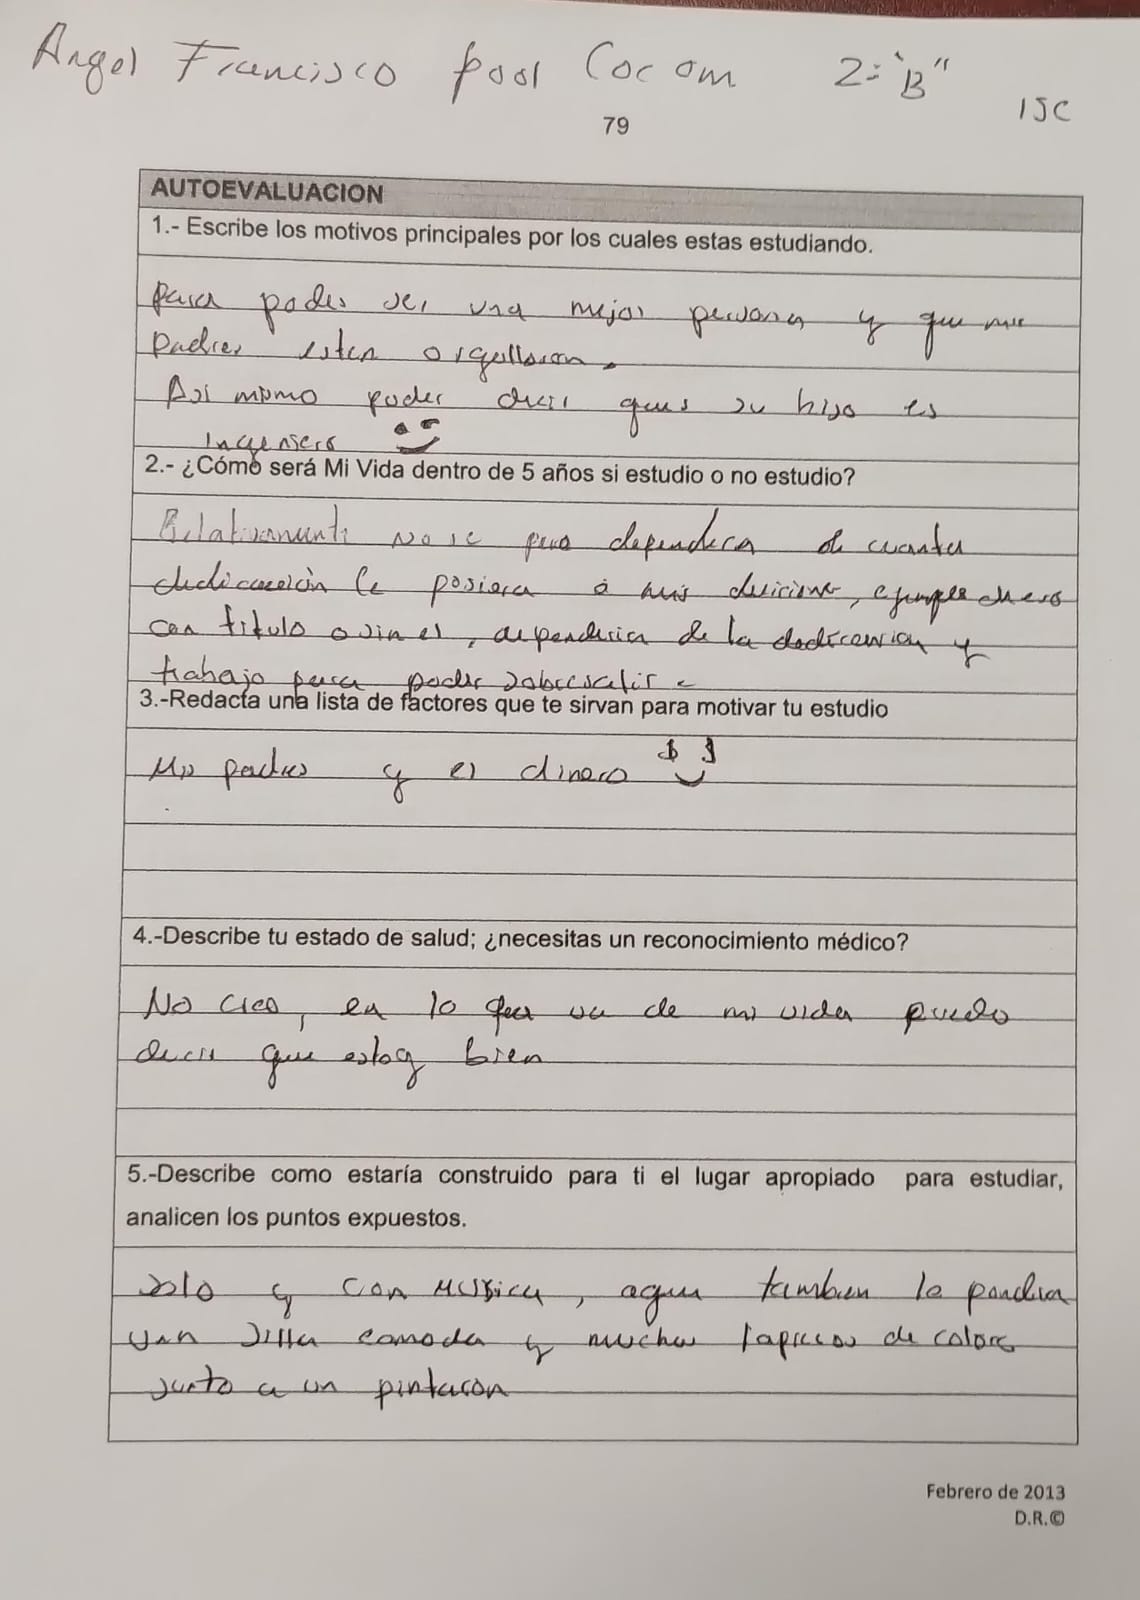 Angel Francisco Pool Cocom 2º "B"
ISC
79
AUTOEVALUACION
1.- Escribe los motivos principales por los cuales estas estudiando.
Para poder ser una mejor persona y que mis
padres esten orgullosos.
Asi mismo poder decir que su hijo es
Ingeniero
2.- ¿Cómo será Mi Vida dentro de 5 años si estudio o no estudio?
Relativamente no se pero dependera de cuanta
dedicación le posiera a mis decisiones, ejemplo
con titulo o sin el, dependeria de la dedicacion y
trabajo para poder sobresalir
3.-Redacta una lista de factores que te sirvan para motivar tu estudio
Mis padres y el dinero $ $
4.-Describe tu estado de salud; ¿necesitas un reconocimiento médico?
No creo, en lo que va de mi vida puedo
decir que estoy bien
5.-Describe como estaría construido para ti el lugar apropiado para estudiar,
analicen los puntos expuestos.
solo y con musica, agua tambien le pondria
una silla comoda y muchos lapiceros de colores
junto a un pintaron
Febrero de 2013
D.R.©